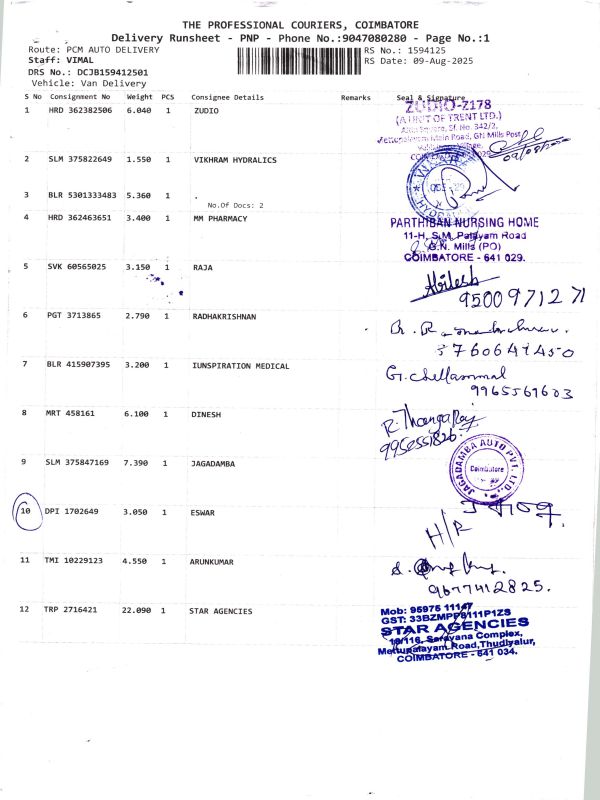 THE PROFESSIONAL COURIERS, COIMBATORE
Delivery Runsheet - PNP - Phone No.:9047080280 - Page No.:1
Route: PCM AUTO DELIVERY
RS No.: 1594125
Staff: VIMAL
RS Date: 09-Aug-2025
DRS No.: DCJB159412501
Vehicle: Van Delivery
S No Consignment No Weight PCS Consignee Details Remarks Seal & Signature
1 HRD 362382506 6.040 1 ZUDIO
ZUDIO-Z178
(A UNIT OF TRENT LTD.)
Sf. No. 342/2,
Main Road, GN Mills Post
2 SLM 375822649 1.550 1 VIKHRAM HYDRALICS
3 BLR 5301333483 5.360 1 .
No.Of Docs: 2
4 HRD 362463651 3.400 1 MM PHARMACY
PARTHIBAN NURSING HOME
11-H, S.M. Palayam Road
G.N. Mills (PO)
COIMBATORE - 641 029.
5 SVK 60565025 3.150 1 RAJA
Abilesh
9500971271
6 PGT 3713865 2.790 1 RADHAKRISHNAN
3760641450
7 BLR 415907395 3.200 1 IUNSPIRATION MEDICAL
G. Chellammal
9965569603
8 MRT 458161 6.100 1 DINESH
R. Thangaraj
9952551826
9 SLM 375847169 7.390 1 JAGADAMBA
JAGADAMBA AUTO PVT. LTD.
Coimbatore
10 DPI 1702649 3.050 1 ESWAR
H/R
11 TMI 10229123 4.550 1 ARUNKUMAR
9677412825.
12 TRP 2716421 22.090 1 STAR AGENCIES
Mob: 95975 11147
GST: 33BZMPP6111P1ZS
STAR AGENCIES
18/116, Saravana Complex,
Mettupalayam Road, Thudiyalur,
COIMBATORE - 641 034.